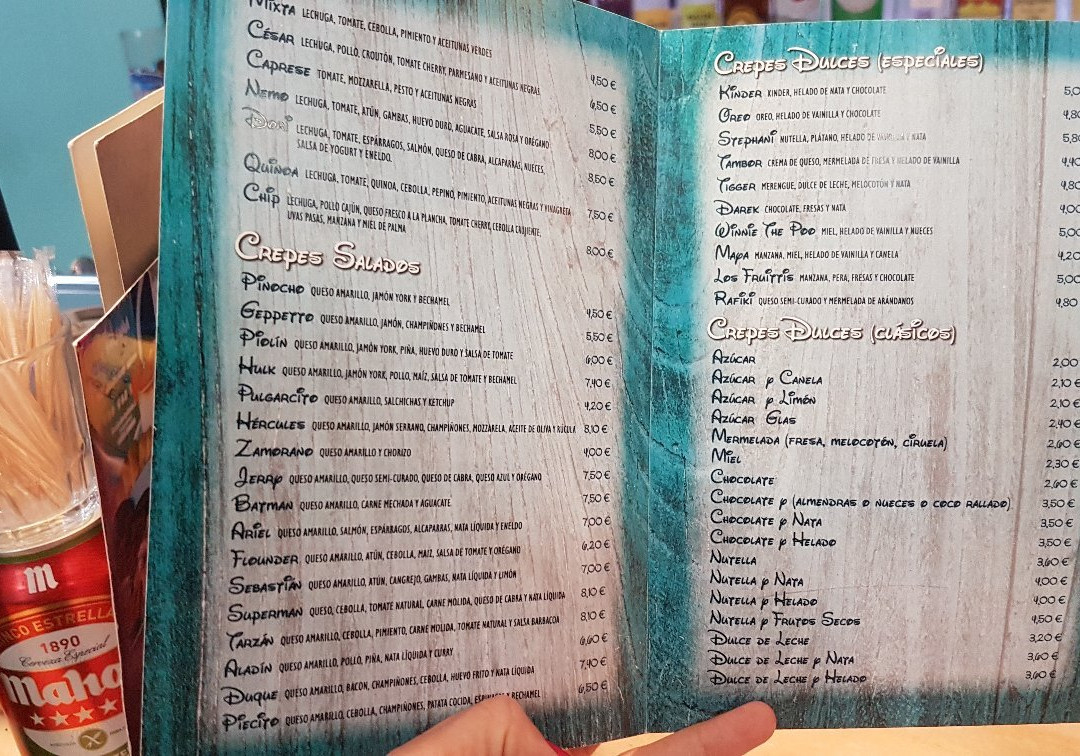 Mixta LECHUGA, TOMATE, CEBOLLA, PIMIENTO Y ACEITUNAS VERDES
4,50 €
César LECHUGA, POLLO, CROUTÓN, TOMATE CHERRY, PARMESANO Y ACEITUNAS NEGRAS
6,50 €
Caprese TOMATE, MOZZARELLA, PESTO Y ACEITUNAS NEGRAS
5,50 €
Nemo LECHUGA, TOMATE, ATÚN, GAMBAS, HUEVO DURO, AGUACATE, SALSA ROSA Y ORÉGANO
8,00 €
Dori LECHUGA, TOMATE, ESPÁRRAGOS, SALMÓN, QUESO DE CABRA, ALCAPARRAS, NUECES,
SALSA DE YOGURT Y ENELDO.
8,50 €
Quinoa LECHUGA, TOMATE, QUINOA, CEBOLLA, PEPINO, PIMIENTO, ACEITUNAS NEGRAS Y VINAGRETA
7,50 €
Chip LECHUGA, POLLO CAJÚN, QUESO FRESCO A LA PLANCHA, TOMATE CHERRY, CEBOLLA CRUJIENTE,
UVAS PASAS, MANZANA Y MIEL DE PALMA
8,00 €
Crepes Salados
Pinocho QUESO AMARILLO, JAMÓN YORK Y BECHAMEL
4,50 €
Geppetto QUESO AMARILLO, JAMÓN, CHAMPIÑONES Y BECHAMEL
5,50 €
Piolín QUESO AMARILLO, JAMÓN YORK, PIÑA, HUEVO DURO Y SALSA DE TOMATE
6,00 €
Hulk QUESO AMARILLO, JAMÓN YORK, POLLO, MAÍZ, SALSA DE TOMATE Y BECHAMEL
7,40 €
Pulgarcito QUESO AMARILLO, SALCHICHAS Y KETCHUP
4,20 €
Hércules QUESO AMARILLO, JAMÓN SERRANO, CHAMPIÑONES, MOZZARELA, ACEITE DE OLIVA Y RÚCULA 8,10 €
Zamorano QUESO AMARILLO Y CHORIZO
4,00 €
Jerry QUESO AMARILLO, QUESO SEMI-CURADO, QUESO DE CABRA, QUESO AZUL Y ORÉGANO
7,50 €
Batman QUESO AMARILLO, CARNE MECHADA Y AGUACATE
7,50 €
Ariel QUESO AMARILLO, SALMÓN, ESPÁRRAGOS, ALCAPARRAS, NATA LÍQUIDA Y ENELDO
7,00 €
Flounder QUESO AMARILLO, ATÚN, CEBOLLA, MAÍZ, SALSA DE TOMATE Y ORÉGANO
6,20 €
Sebastián QUESO AMARILLO, ATÚN, CANGREJO, GAMBAS, NATA LÍQUIDA Y LIMÓN
7,00 €
Superman QUESO, CEBOLLA, TOMATE NATURAL, CARNE MOLIDA, QUESO DE CABRA Y NATA LÍQUIDA
8,10 €
Tarzán QUESO AMARILLO, CEBOLLA, PIMIENTO, CARNE MOLIDA, TOMATE NATURAL Y SALSA BARBACOA
8,10 €
Aladín QUESO AMARILLO, POLLO, PIÑA, NATA LÍQUIDA Y CURRY
6,60 €
Duque QUESO AMARILLO, BACON, CHAMPIÑONES, CEBOLLA, HUEVO FRITO Y NATA LÍQUIDA
7,40 €
Piecito QUESO AMARILLO, CEBOLLA, CHAMPIÑONES, PATATA COCIDA, BECHAMEL
6,50 €
Crepes Dulces (especiales)
Kinder KINDER, HELADO DE NATA Y CHOCOLATE 5,0
Oreo OREO, HELADO DE VAINILLA Y CHOCOLATE 4,80
Stephani NUTELLA, PLÁTANO, HELADO DE VAINILLA Y NATA 5,80
Tambor CREMA DE QUESO, MERMELADA DE FRESA Y HELADO DE VAINILLA 4,40
Tigger MERENGUE, DULCE DE LECHE, MELOCOTÓN Y NATA 4,80
Darek CHOCOLATE, FRESAS Y NATA 4,00
Winnie The Poo MIEL, HELADO DE VAINILLA Y NUECES 5,00
Maya MANZANA, MIEL, HELADO DE VAINILLA Y CANELA 4,20
Los Fruittis MANZANA, PERA, FRESAS Y CHOCOLATE 5,00
Rafiki QUESO SEMI-CURADO Y MERMELADA DE ARÁNDANOS 4,80
Crepes Dulces (clásicos)
Azúcar 2,00
Azúcar y Canela 2,10 €
Azúcar y Limón 2,10 €
Azúcar Glas 2,40 €
Mermelada (fresa, melocotón, ciruela) 2,60 €
Miel 2,30 €
Chocolate 2,60 €
Chocolate y (almendras o nueces o coco rallado) 3,50 €
Chocolate y Nata 3,50 €
Chocolate y Helado 3,50 €
Nutella 3,60 €
Nutella y Nata 4,00 €
Nutella y Helado 4,00 €
Nutella y Frutos Secos 4,50 €
Dulce de Leche 3,20 €
Dulce de Leche y Nata 3,60 €
Dulce de Leche y Helado 3,60 €
m
NCO ESTRELLA
1890
Cerveza Especial
Maho